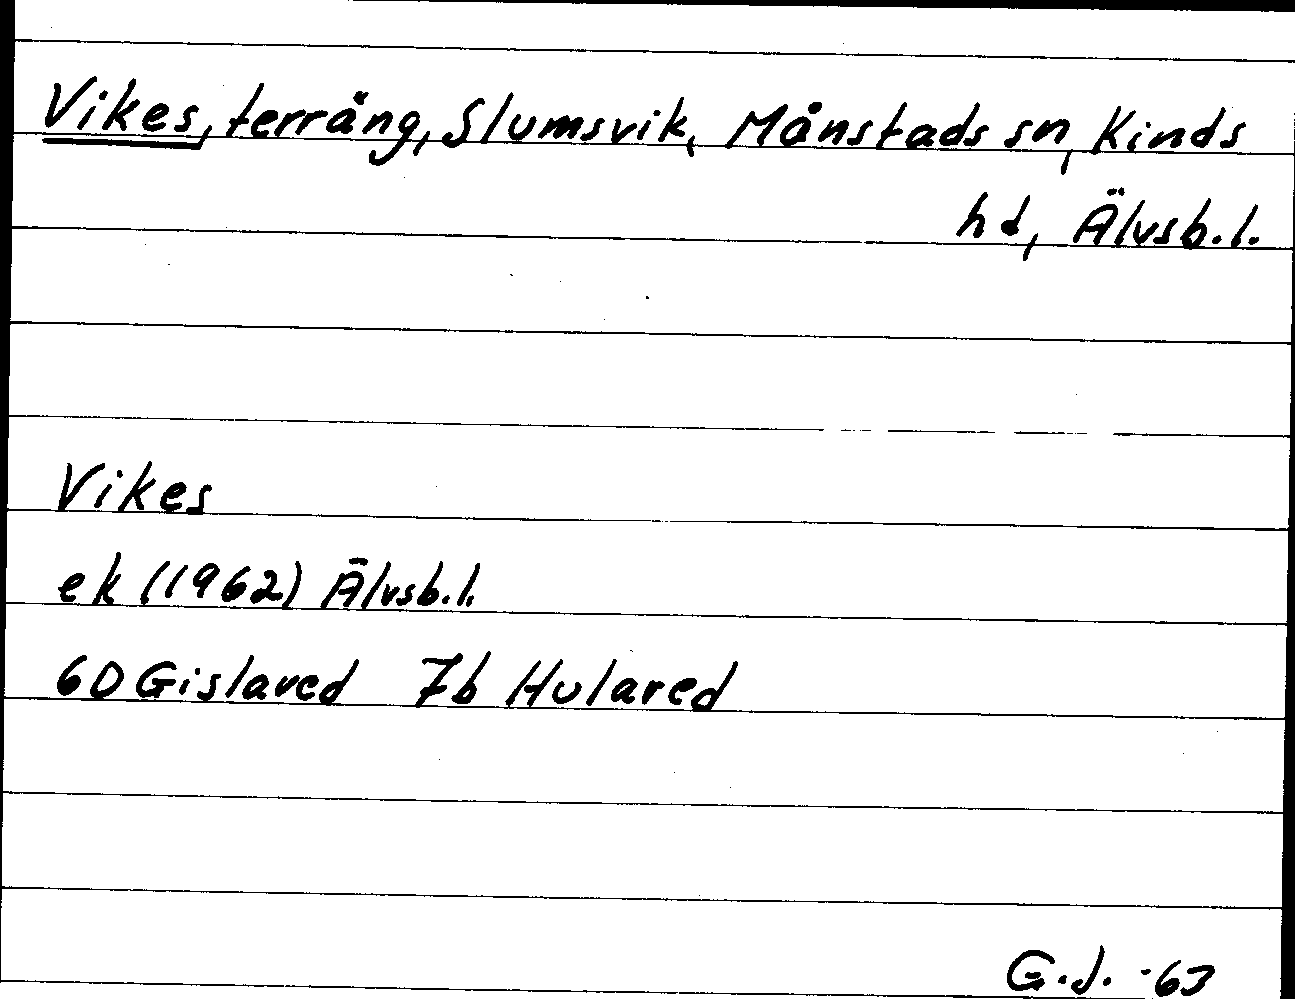 Vikes, terräng, Slumsvik, Månstads sn, Kinds
hd, Älvsb.l.
Vikes
ek (1962) Älvsb.l.
6D Gislaved 7b Hulared
G.J. -63